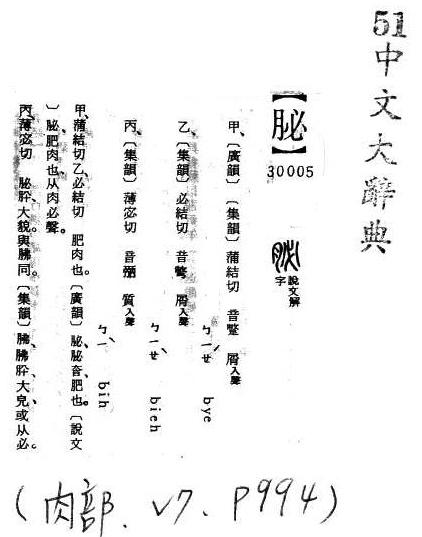 51中文大辭典
【胇】
30005
說文解字
甲、〔廣韻〕〔集韻〕蒲結切 音蹩 屑入聲
ㄅㄧㄝˊ bye
乙、〔集韻〕必結切 音彆 屑入聲
ㄅㄧㄝ bieh
丙、〔集韻〕薄宓切 音 質入聲
ㄅㄧˋ bih
甲、蒲結切乙、必結切 肥肉也。〔廣韻〕胇、胇脊、肥也。〔說文
〕胇、肥肉也、从肉必聲。
丙、薄宓切 胇肸、大貌。與胇同。〔集韻〕胇、胇肸、大皃、或从必。
(肉部、V7、P994)